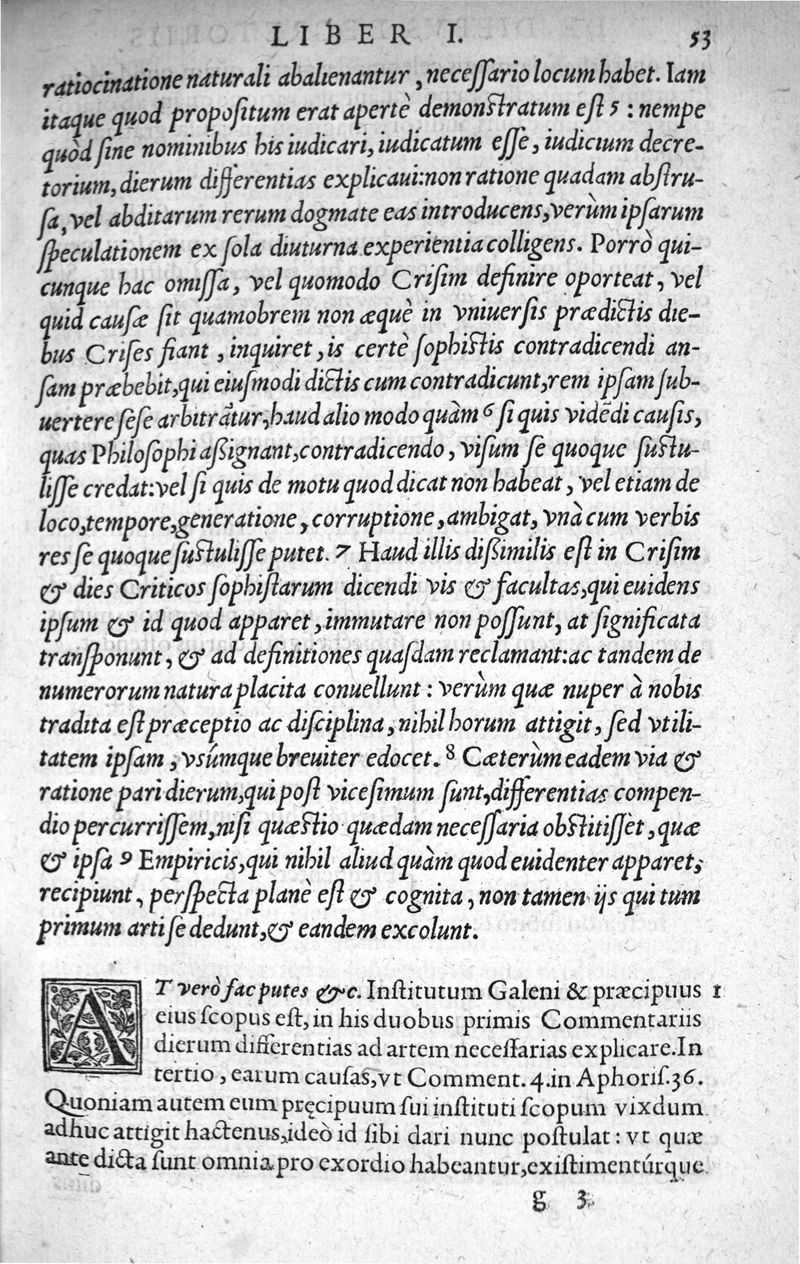 LIBER I. 53
ratiocinatione naturali abalienantur, necessario locum habet. Iam
itaque quod propositum erat apertè demonstratum est 5 : nempe
quòd sine nominibus his iudicari, iudicatum esse, iudicium decre-
torium, dierum differentias explicaui: non ratione quadam abstru-
sa, vel abditarum rerum dogmate eas introducens, verùm ipsarum
speculationem ex sola diuturna experientia colligens. Porrò qui-
cunque hac omissa, vel quomodo Crisim definire oporteat, vel
quid causæ sit quamobrem non æquè in vniuersis prædictis die-
bus Crises fiant, inquiret, is certè sophistis contradicendi an-
sam præbebit, qui eiusmodi dictis cum contradicunt, rem ipsam sub-
uertere sese arbitrãtur, haud alio modo quàm 6 si quis vidẽdi causis,
quas Philosophi aßignant, contradicendo, visum se quoque sustu-
lisse credat: vel si quis de motu quod dicat non habeat, vel etiam de
loco, tempore, generatione, corruptione, ambigat, vnà cum verbis
res se quoque sustulisse putet. 7 Haud illis dißimilis est in Crisim
& dies Criticos sophistarum dicendi vis & facultas, qui euidens
ipsum & id quod apparet, immutare non possunt, at significata
transponunt, & ad definitiones quasdam reclamant: ac tandem de
numerorum natura placita conuellunt : verùm quæ nuper à nobis
tradita est præceptio ac disciplina, nihil horum attigit, sed vtili-
tatem ipsam, vsúmque breuiter edocet. 8 Cæterùm eadem via &
ratione pari dierum, qui post vicesimum sunt, differentias compen-
dio percurrissem, nisi quæstio quædam necessaria obstitisset, quæ
& ipsa 9 Empiricis, qui nihil aliud quàm quod euidenter apparet,
recipiunt, perspecta planè est & cognita, non tamen ijs qui tum
primum arti se dedunt, & eandem excolunt.
AT verò fac putes &c. Institutum Galeni & præcipuus 1
eius scopus est, in his duobus primis Commentariis
dierum differentias ad artem necessarias explicare. In
tertio, earum causas, vt Comment. 4. in Aphoris. 36.
Quoniam autem eum pręcipuum sui instituti scopum vixdum
adhuc attigit hactenus, ideò id sibi dari nunc postulat: vt quæ
ante dicta sunt omnia pro exordio habeantur, existimentúrque
g 3